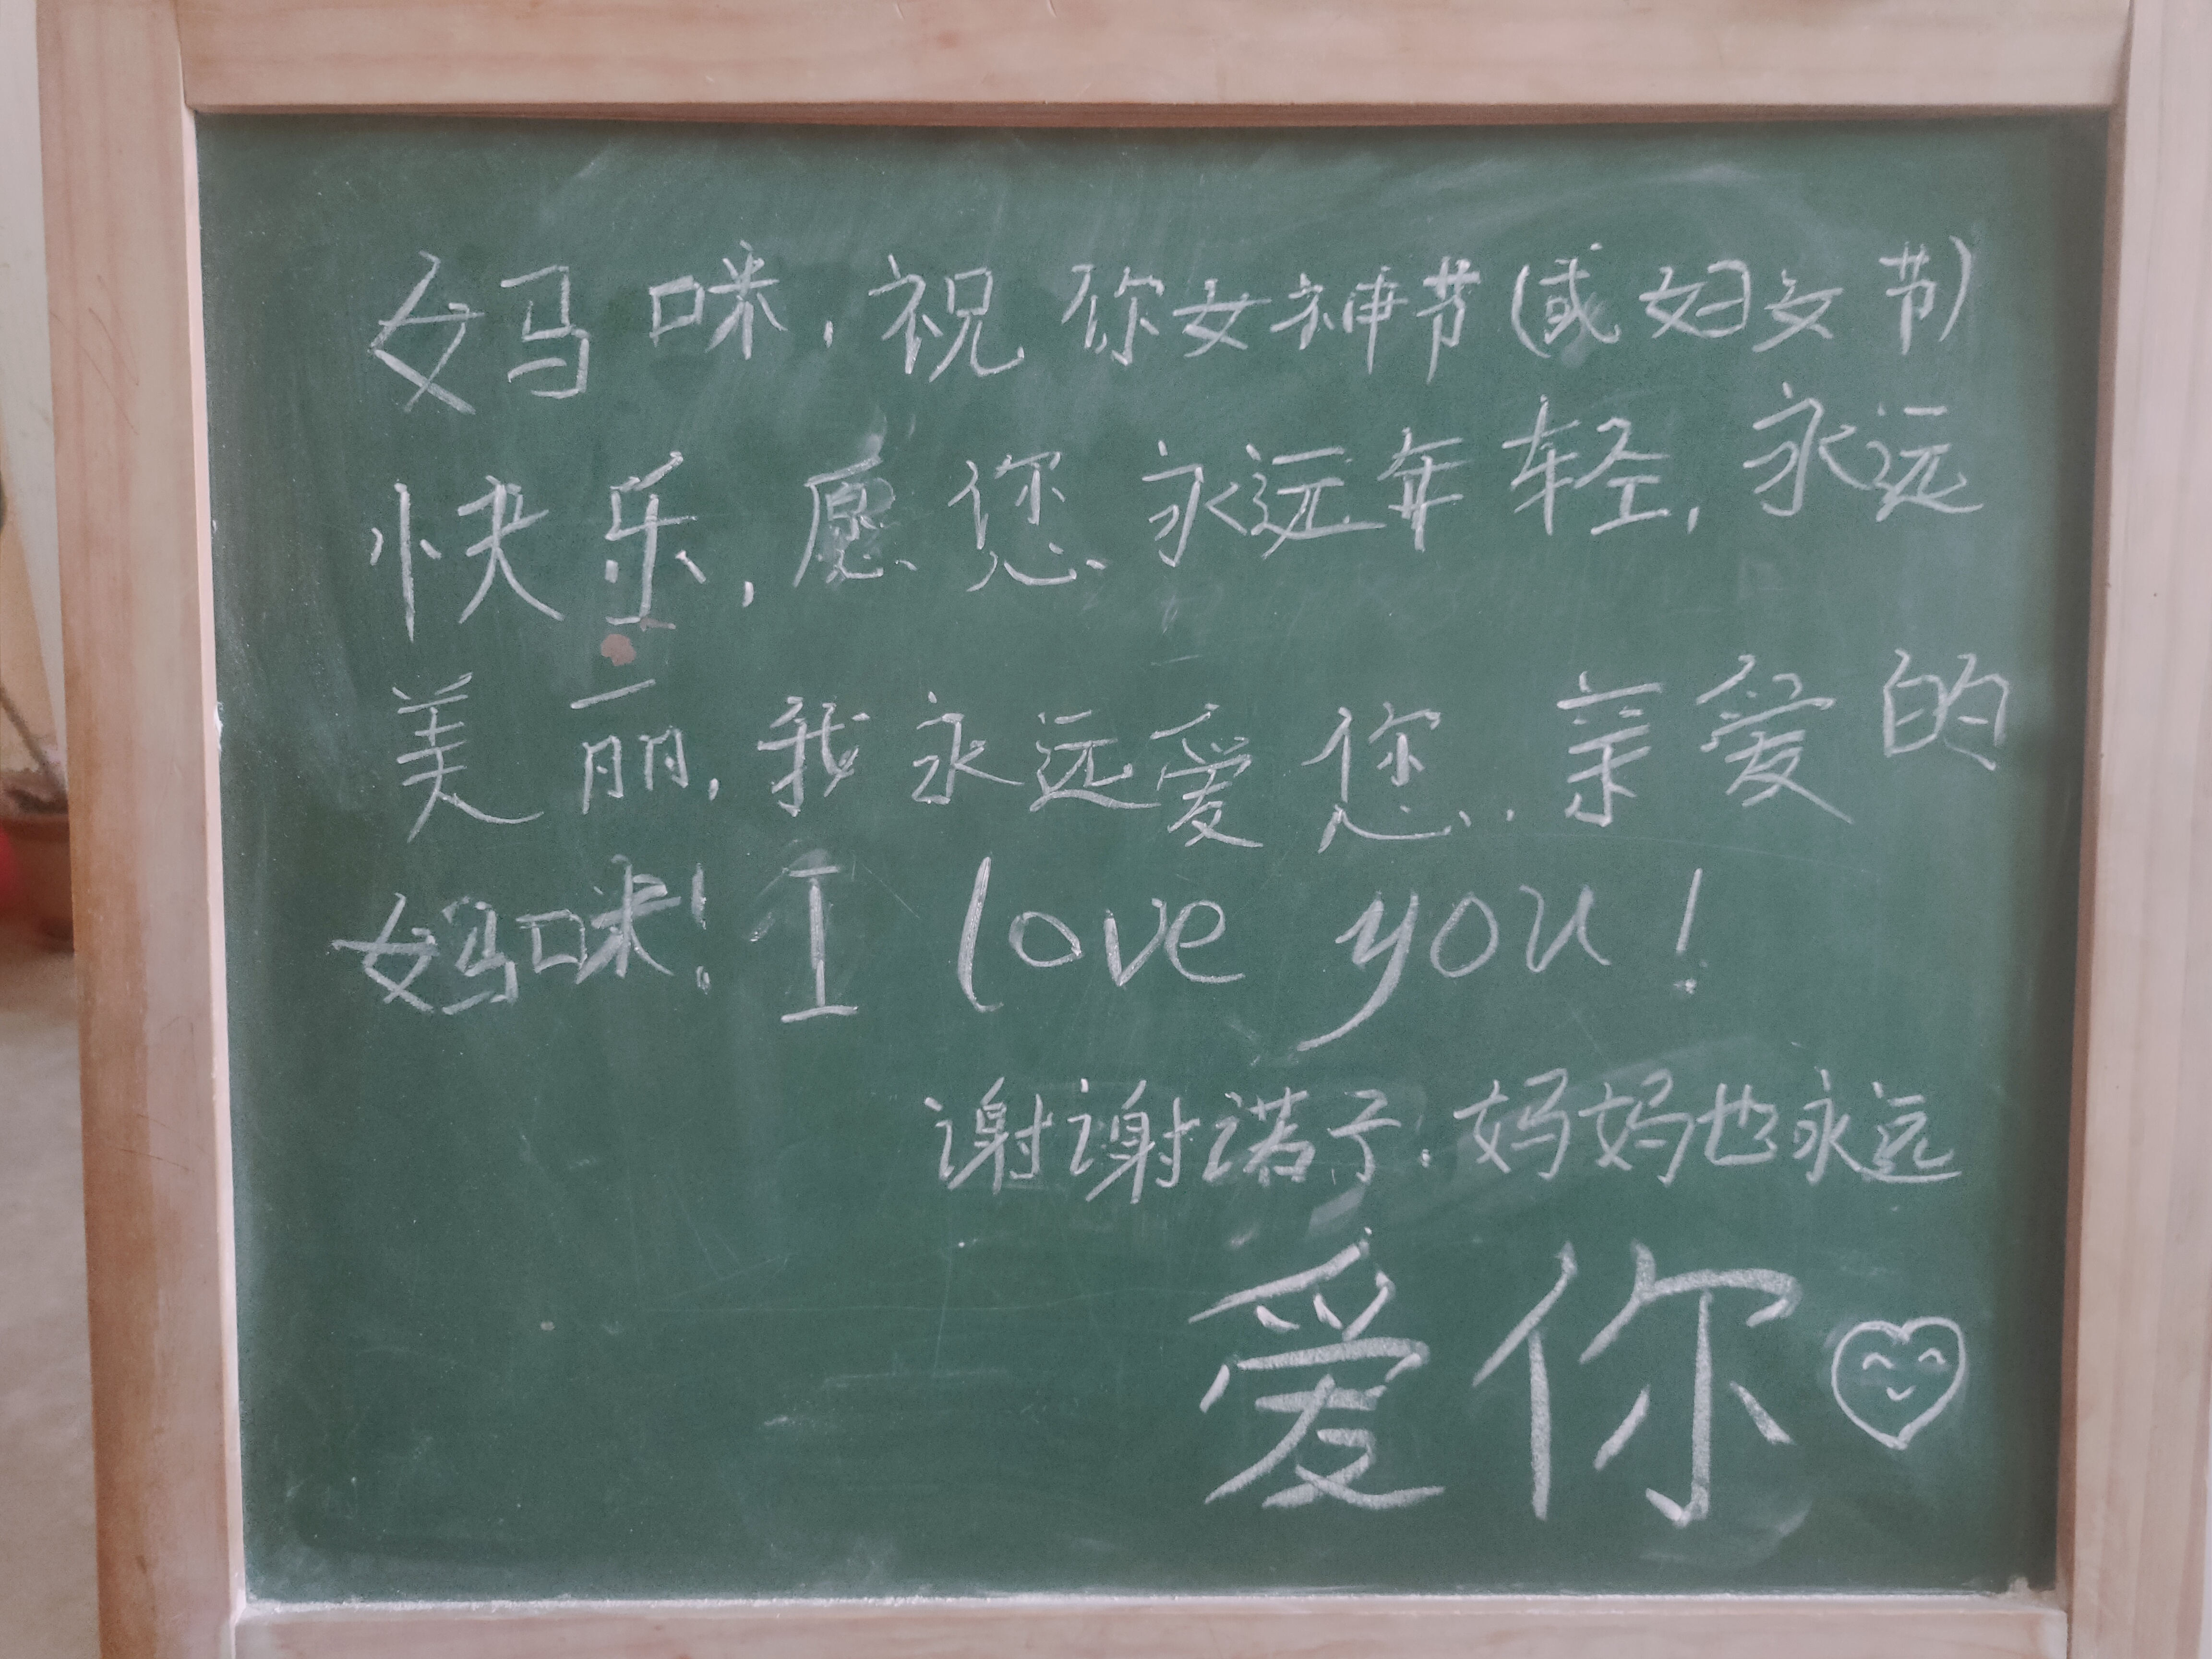 妈咪，祝你女神节(或妇女节)
快乐，愿您永远年轻，永远
美丽，我永远爱您..亲爱的
妈咪！I love you!
谢谢诺子.妈妈也永远
爱你